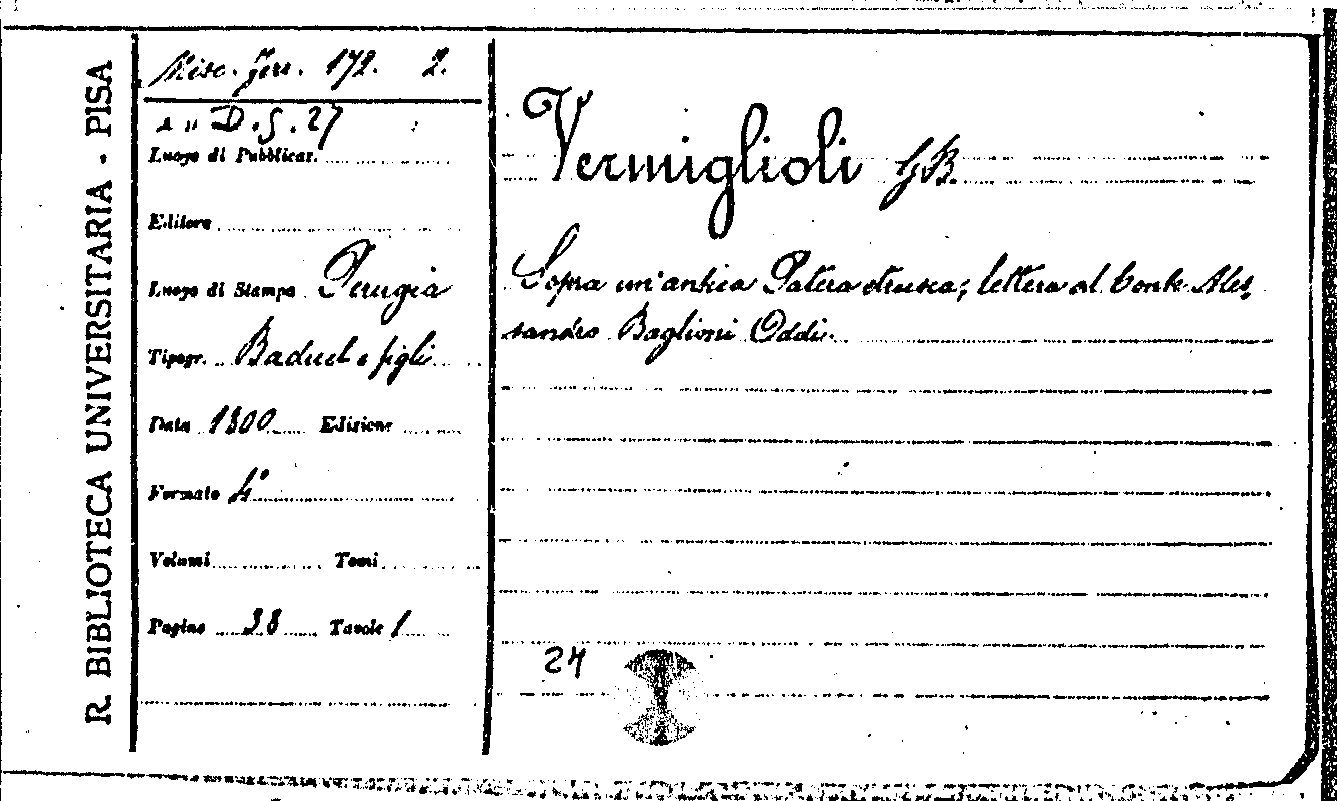 R. BIBLIOTECA UNIVERSITARIA - PISA
Misc. Ferr. 172. 2.
D. g. 27
Luogo di Pubblicaz.
Editore
Luogo di Stampa Perugia
Tipogr. Baduel e figli
Data 1800 Edizione
Formato 4°
Volumi Tomi
Pagine 38 Tavole 1
Vermiglioli G B.
Sopra un'antica Patera etrusca; lettera al Conte Ales
sandro Baglioni Oddi.
24